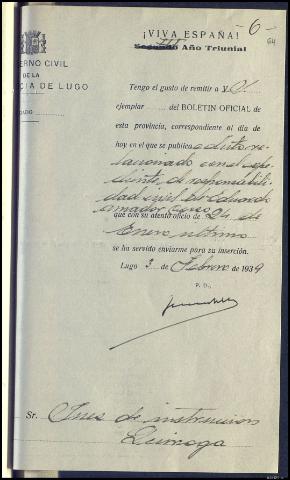 ¡VIVA ESPAÑA!
-6-
64
III
Segundo Año Triunfal
ERNO CIVIL
DE LA
CIA DE LUGO
Tengo el gusto de remitir a V. 01
ejemplar del BOLETIN OFICIAL de
esta provincia, correspondiente al día de
hoy en el que se publica edicto re-
lacionado con el expe-
diente de responsabili-
dad civil de Eduardo
Amador
que con su atento oficio de 24 de
Enero ultimo
se ha servido enviarme para su inserción.
Lugo 3 de Febrero de 1939
P. D.,
Sr. Juez de instruccion
Quiroga